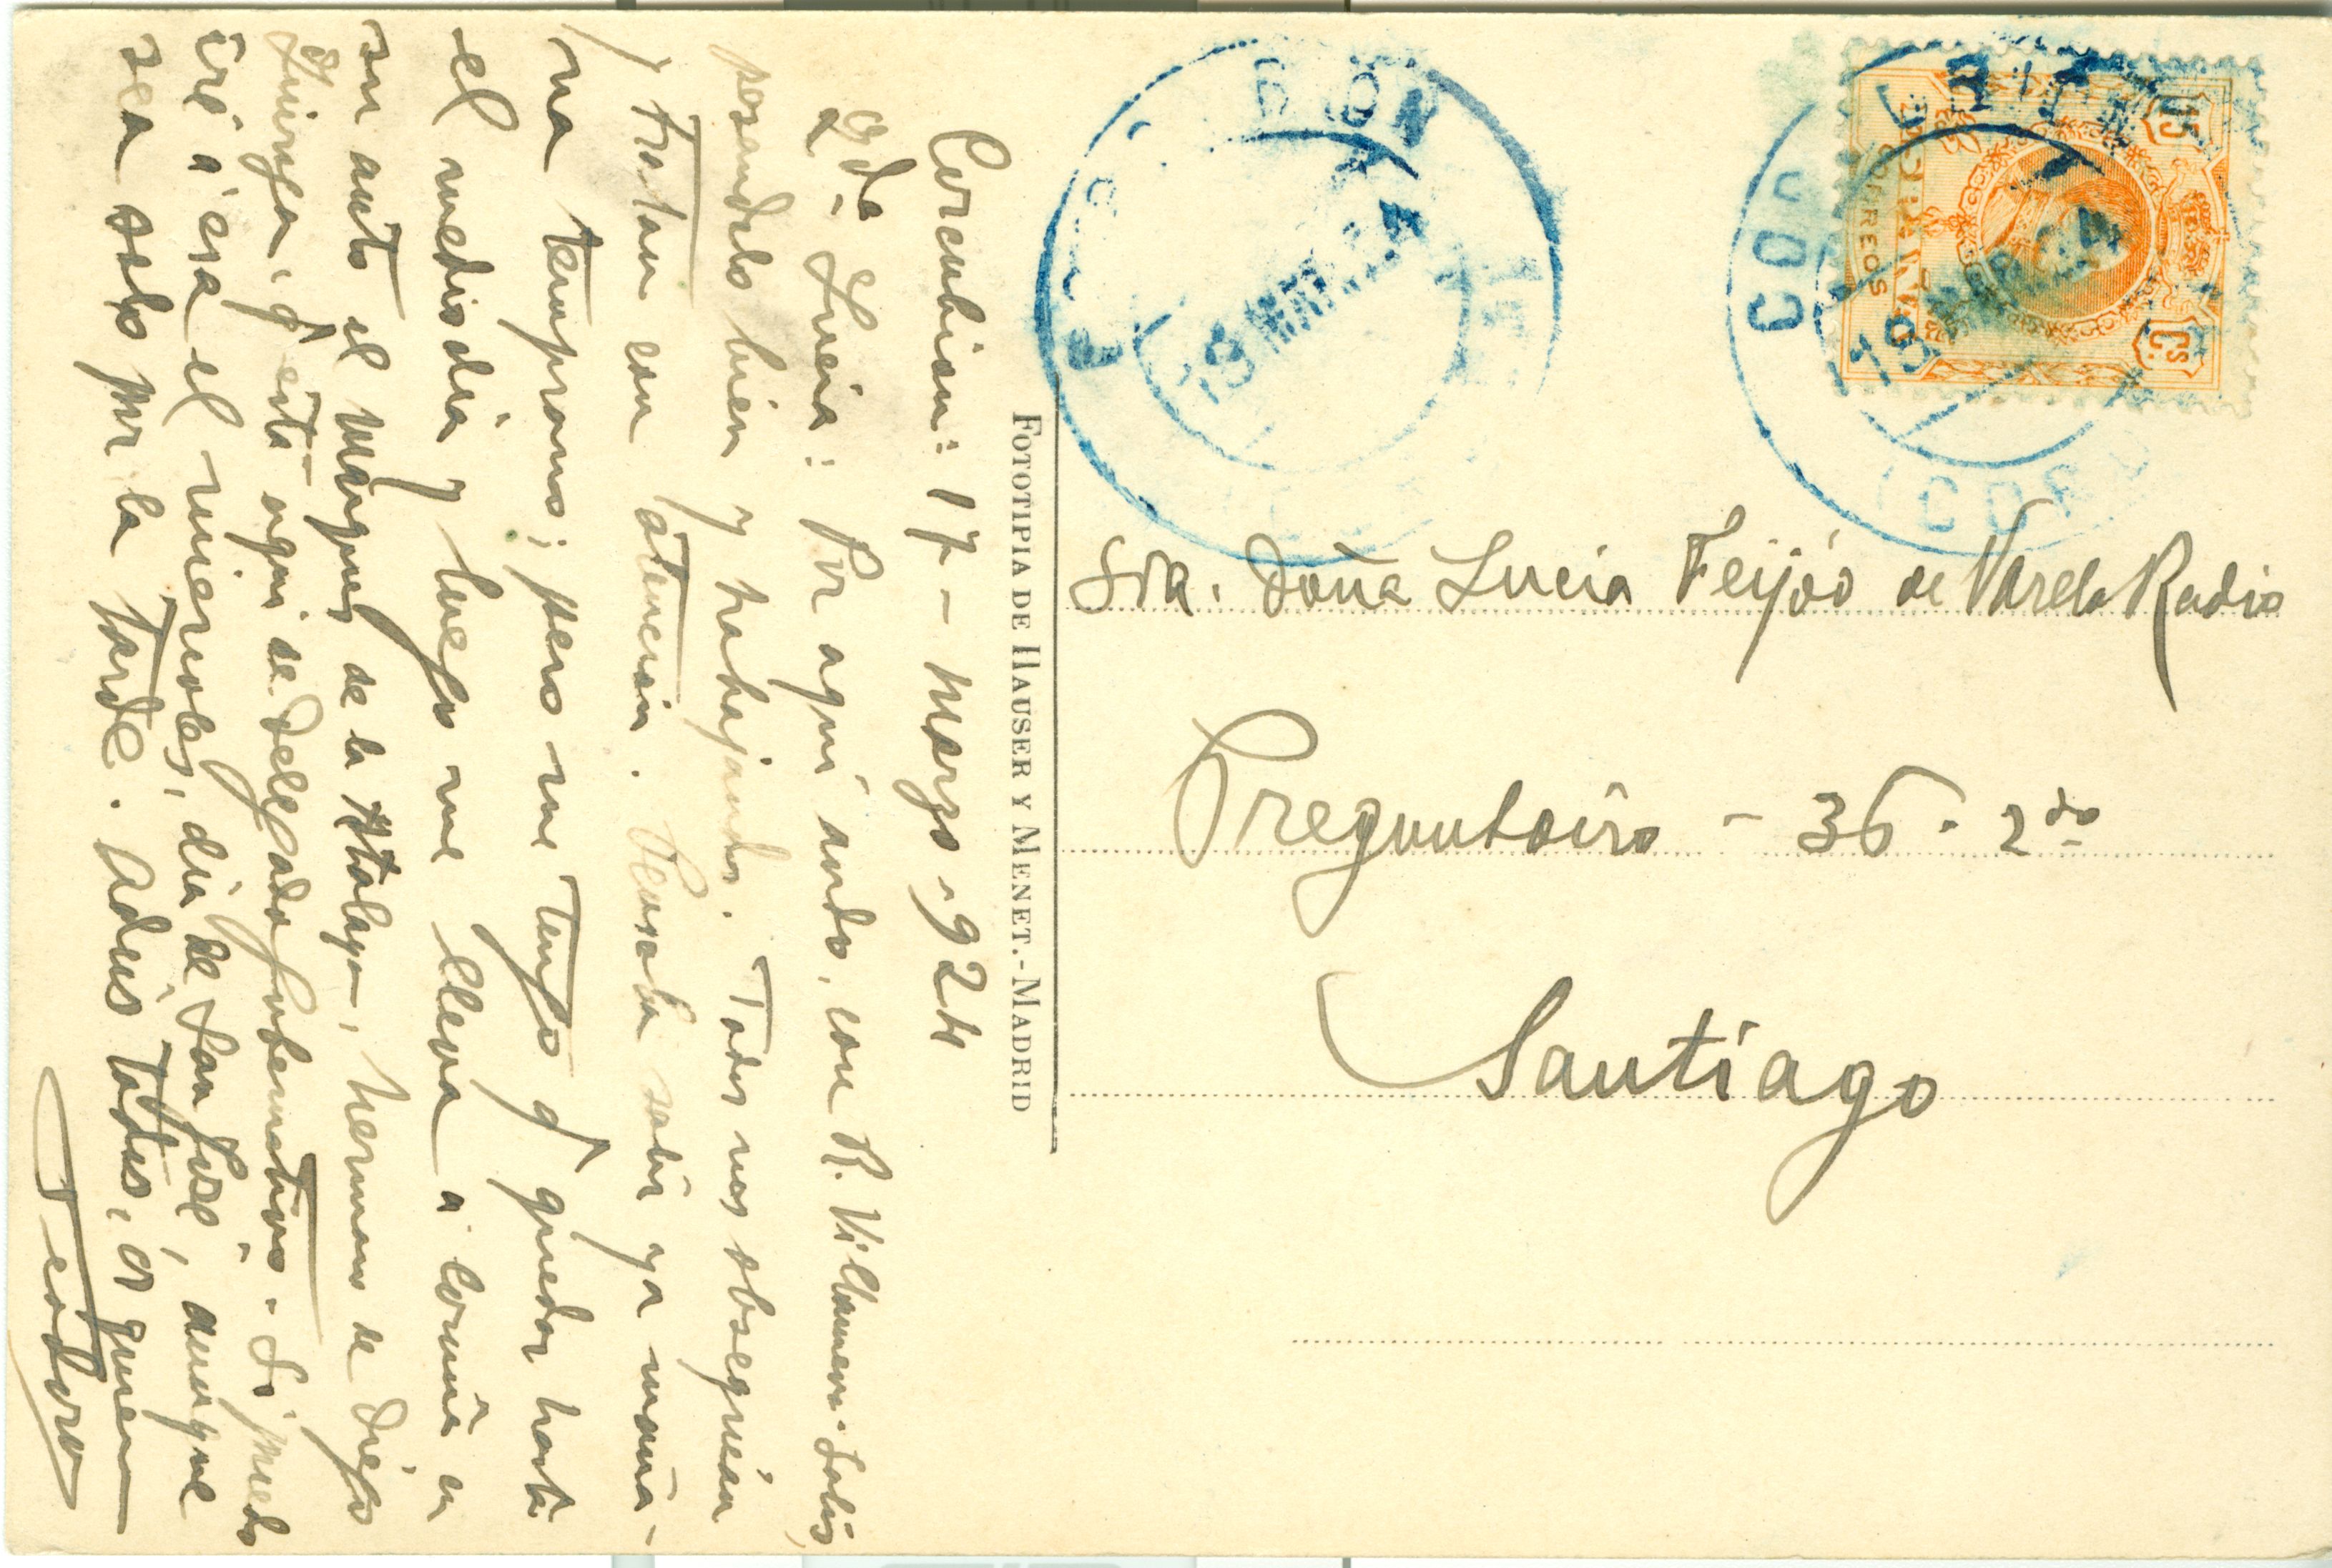 Corcubion: 17 - Marzo - 924
Qda. Lucia: Por aquí ando, con R. Villamera-Solis,
pasandolo bien y trabajando. Todos nos obsequian
y tratan con atencion. Pensaba salir ya maña-
na temprano; pero me tengo q quedar hasta
el mediodia y luego me lleva a Coruña en
su auto el Marques de la Atalaya, hermano de Diego
Quiroga, q está aqui de Delegado gubernativo. Si puedo
iré a esa el miercoles, dia de San José, aunque
sea solo por la tarde. Adiós todos, os quiere
Teodoro
FOTOTIPIA DE HAUSER Y MENET.-MADRID
CORREOS
15
Cs
18 MAR 24
18 MAR 24
Sra. Doña Lucia Feijóo de Varela Radio
Preguntoiro - 36 - 2do
Santiago